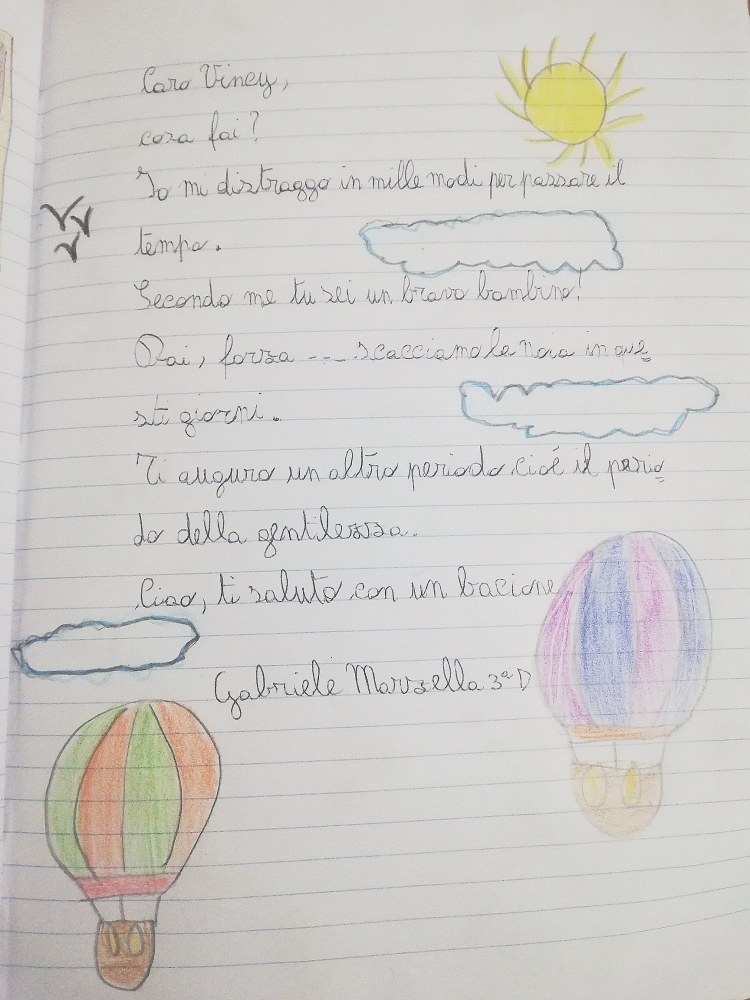 Caro Viney,
cosa fai?
Io mi distraggo in mille modi per passare il
tempo.
Secondo me tu sei un bravo bambino!
Dai, forza --- scacciamo la noia in que
sti giorni.
Ti auguro un altro periodo, cioé il perio
do della gentilezza.
Ciao, ti saluto con un bacione,
Gabriele Marzella 3ª D